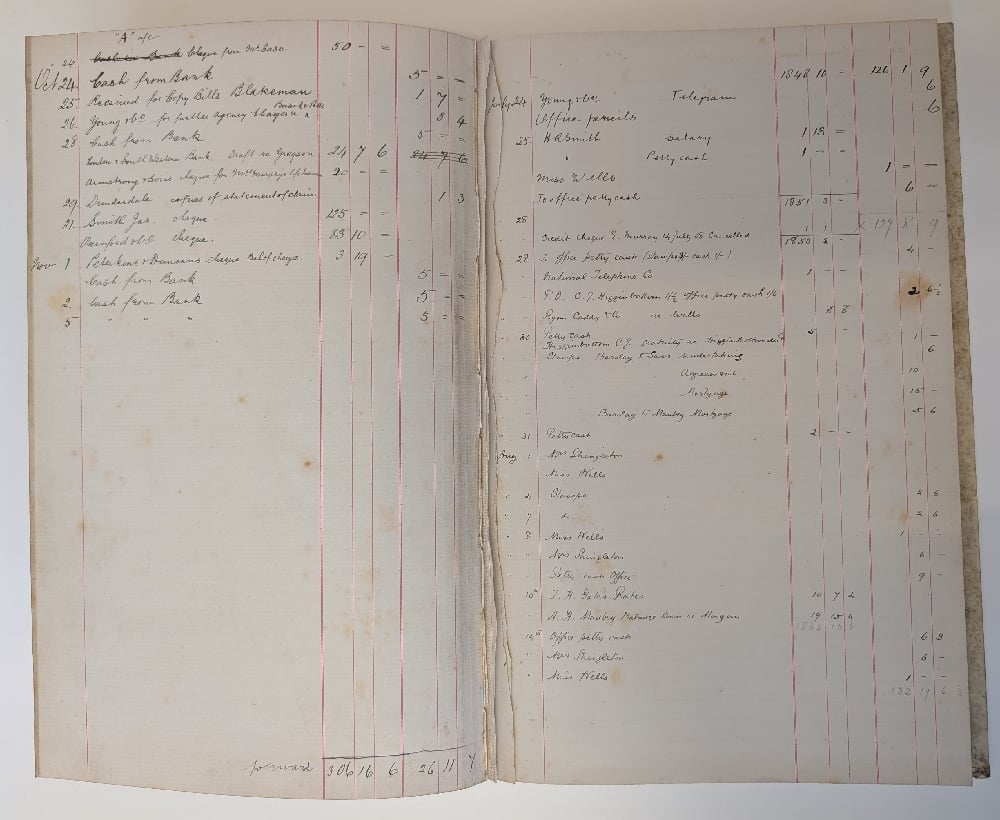 "A" a/c
24 Cash in Bank Cheque from Mr 50 - =
Oct 24 Cash from Bank 5 = -
25 Received for Copy Bills Blakeman 1 7 =
26 Young & Co for further Agency Charges 3 4
28 Cash from Bank 5 - =
London & South Western Bank. Draft re Grayson 24 7 6 24 7 6
Armstrong & Sons cheque for Mr Murphy's 20 - =
29 copies of statement of claim 1 3
21 Smith Jas. cheque 125 = =
cheque. 83 10 -
Nov 1 & Duncans cheque Bal of charges 3 19 -
Cash from Bank 5 = =
2 Cash from Bank 5 - =
5 " " " 5 - =
forward 306 16 6 26 11 7
1848 10 = 126 1 9
July 24 Young & Co. Telegram 6
Office pencils 6
25 H R Smith salary 1 12 =
" Petty cash 1 - -
Miss Wells 1 = -
To office petty cash 6 =
1851 3 -
26 1 1 X 127 8 9
Credit cheque E. Murray 14 July 05 Cancelled 1850 2 -
28 To Office Petty cash 4 -
National Telephone Co 1 - -
P.O. C. J. Higginbottom Office petty cash 2 6½
Caddy & Co re Wells 8 8
30 Petty cash 5 -
Higginbottom C J gratuity re 1 -
Stamps Barclay & Sons undertaking 6
Agreement 10
Mortgage 15 -
Barclay to Maubey Mortgage 5 6
" 31 Petty cash 2 - -
Aug 1 Mrs Shingleton
Miss Wells
" 4 Stamps 2 6
" 7 do 2 6
" 8 Miss Wells 1 - -
" Mrs Shingleton 6 -
cash Office 9 -
10th J. H. Rates 10 7 2
" A. H. Maubey Loan re Morgan 19 15 6
14th Office petty cash 6 3
" Mrs Shingleton 6 -
" Miss Wells 1 -
132 19 6 ½